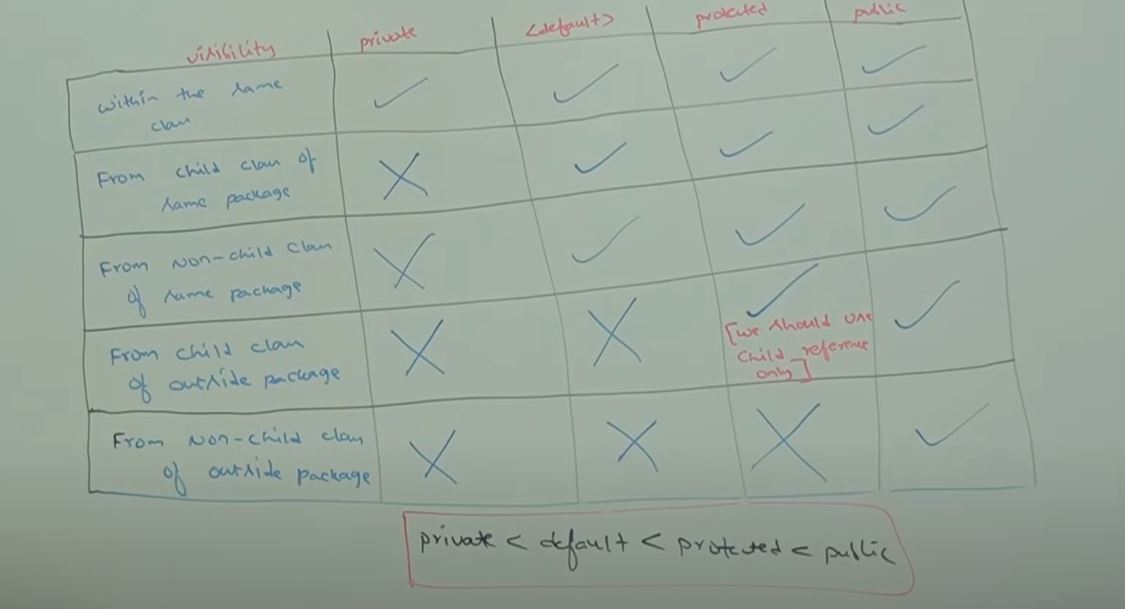 visibility private <default> protected public
within the same
class
✓ ✓ ✓ ✓
From child class of
same package
X ✓ ✓ ✓
From Non-child class
of same package
X ✓ ✓ ✓
From child class
of outside package
X X ✓ ✓
[we should use
child reference
only]
From Non-child class
of outside package
X X X ✓
private < default < protected < public